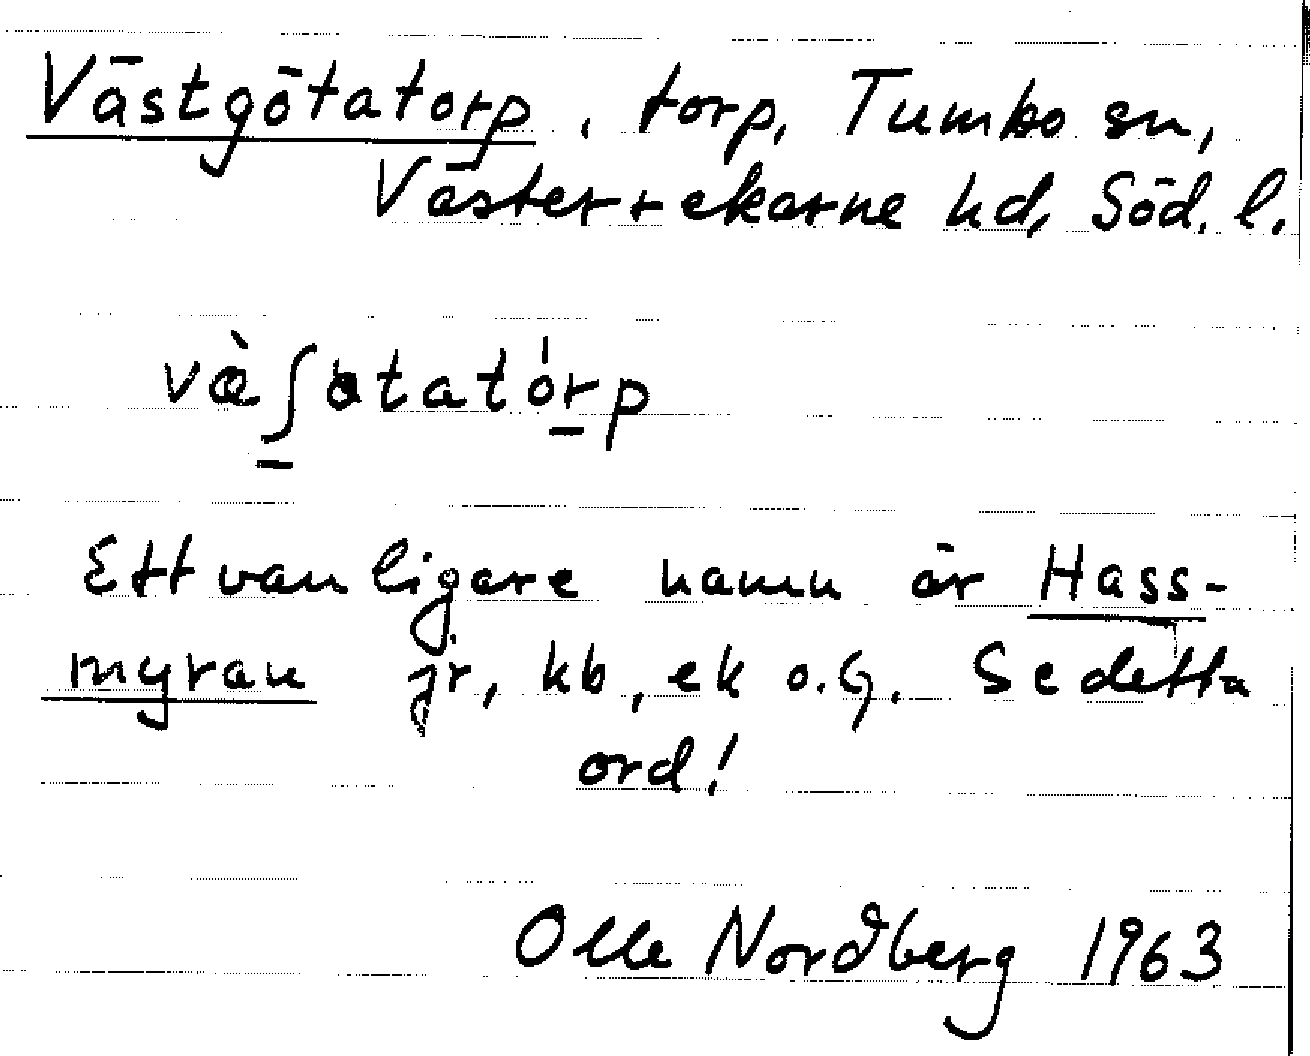 Västgötatorp, torp, Tumbo sn,
Västerrekarne hd, Söd. l.
væ̀ʃ̲ɵtató̲rp
Ett vanligare namn är Hass-
myran jr, kb, ek o.G. Se detta
ord!
Olle Nordberg 1963